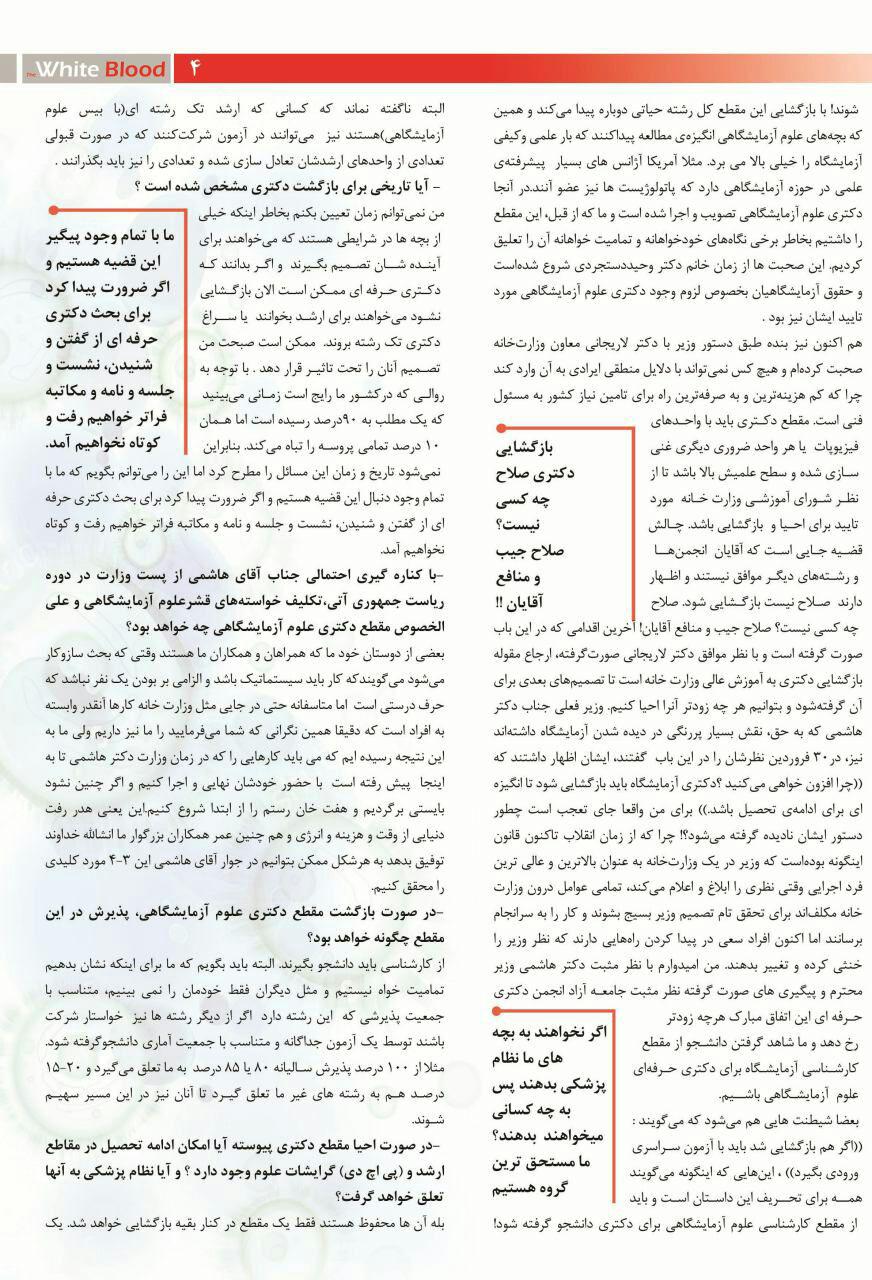 The White Blood
۴
شوند! با بازگشایی این مقطع کل رشته حیاتی دوباره پیدا می‌کند و همین
که بچه‌های علوم آزمایشگاهی انگیزه‌ی مطالعه پیداکنند که بار علمی وکیفی
آزمایشگاه را خیلی بالا می برد. مثلا آمریکا آژانس های بسیار پیشرفته‌ی
علمی در حوزه آزمایشگاهی دارد که پاتولوژیست ها نیز عضو آنند.در آنجا
دکتری علوم آزمایشگاهی تصویب و اجرا شده است و ما که از قبل، این مقطع
را داشتیم بخاطر برخی نگاه‌های خودخواهانه و تمامیت خواهانه آن را تعلیق
کردیم. این صحبت ها از زمان خانم دکتر وحیددستجردی شروع شده‌است
و حقوق آزمایشگاهیان بخصوص لزوم وجود دکتری علوم آزمایشگاهی مورد
تایید ایشان نیز بود .
هم اکنون نیز بنده طبق دستور وزیر با دکتر لاریجانی معاون وزارت‌خانه
صحبت کرده‌ام و هیچ کس نمی‌تواند با دلایل منطقی ایرادی به آن وارد کند
چرا که کم هزینه‌ترین و به صرفه‌ترین راه برای تامین نیاز کشور به مسئول
فنی است. مقطع دکتری باید با واحدهای
فیزیوپات یا هر واحد ضروری دیگری غنی
سازی شده و سطح علمیش بالا باشد تا از
نظر شورای آموزشی وزارت خانه مورد
تایید برای احیا و بازگشایی باشد. چالش
قضیه جایی است که آقایان انجمن‌ها
و رشته‌های دیگر موافق نیستند و اظهار
دارند صلاح نیست بازگشایی شود. صلاح
بازگشایی
دکتری صلاح
چه کسی
نیست؟
صلاح جیب
و منافع
آقایان !!
چه کسی نیست؟ صلاح جیب و منافع آقایان! آخرین اقدامی که در این باب
صورت گرفته است و با نظر موافق دکتر لاریجانی صورت‌گرفته، ارجاع مقوله
بازگشایی دکتری به آموزش عالی وزارت خانه است تا تصمیم‌های بعدی برای
آن گرفته‌شود و بتوانیم هر چه زودتر آنرا احیا کنیم. وزیر فعلی جناب دکتر
هاشمی که به حق، نقش بسیار پررنگی در دیده شدن آزمایشگاه داشته‌اند
نیز، در۳۰ فروردین نظرشان را در این باب گفتند، ایشان اظهار داشتند که
((چرا افزون خواهی می‌کنید ؟دکتری آزمایشگاه باید بازگشایی شود تا انگیزه
ای برای ادامه‌ی تحصیل باشد.)) برای من واقعا جای تعجب است چطور
دستور ایشان نادیده گرفته می‌شود؟! چرا که از زمان انقلاب تاکنون قانون
اینگونه بوده‌است که وزیر در یک وزارت‌خانه به عنوان بالاترین و عالی ترین
فرد اجرایی وقتی نظری را ابلاغ و اعلام می‌کند، تمامی عوامل درون وزارت
خانه مکلف‌اند برای تحقق تام تصمیم وزیر بسیج بشوند و کار را به سرانجام
برسانند اما اکنون افراد سعی در پیدا کردن راه‌هایی دارند که نظر وزیر را
خنثی کرده و تغییر بدهند. من امیدوارم با نظر مثبت دکتر هاشمی وزیر
محترم و پیگیری های صورت گرفته نظر مثبت جامعه آزاد انجمن دکتری
حرفه ای این اتفاق مبارک هرچه زودتر
رخ دهد و ما شاهد گرفتن دانشجو از مقطع
کارشناسی آزمایشگاه برای دکتری حرفه‌ای
علوم آزمایشگاهی باشیم.
بعضا شیطنت هایی هم می‌شود که می‌گویند :
((اگر هم بازگشایی شد باید با آزمون سراسری
ورودی بگیرد)) ، این‌هایی که اینگونه می‌گویند
همه برای تحریف این داستان است و باید
از مقطع کارشناسی علوم آزمایشگاهی برای دکتری دانشجو گرفته شود!
اگر نخواهند به بچه
های ما نظام
پزشکی بدهند پس
به چه کسانی
میخواهند بدهند؟
ما مستحق ترین
گروه هستیم
البته ناگفته نماند که کسانی که ارشد تک رشته ای(با بیس علوم
آزمایشگاهی)هستند نیز می‌توانند در آزمون شرکت‌کنند که در صورت قبولی
تعدادی از واحدهای ارشدشان تعادل سازی شده و تعدادی را نیز باید بگذرانند .
- آیا تاریخی برای بازگشت دکتری مشخص شده است ؟
من نمی‌توانم زمان تعیین بکنم بخاطر اینکه خیلی
از بچه ها در شرایطی هستند که می‌خواهند برای
آینده شان تصمیم بگیرند و اگر بدانند که
دکتری حرفه ای ممکن است الان بازگشایی
نشود می‌خواهند برای ارشد بخوانند یا سراغ
دکتری تک رشته بروند. ممکن است صحبت من
تصمیم آنان را تحت تاثیر قرار دهد . با توجه به
روالی که درکشور ما رایج است زمانی می‌بینید
که یک مطلب به ۹۰درصد رسیده است اما همان
۱۰ درصد تمامی پروسه را تباه می‌کند. بنابراین
ما با تمام وجود پیگیر
این قضیه هستیم و
اگر ضرورت پیدا کرد
برای بحث دکتری
حرفه ای از گفتن و
شنیدن، نشست و
جلسه و نامه و مکاتبه
فراتر خواهیم رفت و
کوتاه نخواهیم آمد.
نمی‌شود تاریخ و زمان این مسائل را مطرح کرد اما این را می‌توانم بگویم که ما با
تمام وجود دنبال این قضیه هستیم و اگر ضرورت پیدا کرد برای بحث دکتری حرفه
ای از گفتن و شنیدن، نشست و جلسه و نامه و مکاتبه فراتر خواهیم رفت و کوتاه
نخواهیم آمد.
-با کناره گیری احتمالی جناب آقای هاشمی از پست وزارت در دوره
ریاست جمهوری آتی،تکلیف خواسته‌های قشرعلوم آزمایشگاهی و علی
الخصوص مقطع دکتری علوم آزمایشگاهی چه خواهد بود؟
بعضی از دوستان خود ما که همراهان و همکاران ما هستند وقتی که بحث سازوکار
می‌شود می‌گویندکه کار باید سیستماتیک باشد و الزامی بر بودن یک نفر نباشد که
حرف درستی است اما متاسفانه حتی در جایی مثل وزارت خانه کارها آنقدر وابسته
به افراد است که دقیقا همین نگرانی که شما می‌فرمایید را ما نیز داریم ولی ما به
این نتیجه رسیده ایم که می باید کارهایی را که در زمان وزارت دکتر هاشمی تا به
اینجا پیش رفته است با حضور خودشان نهایی و اجرا کنیم و اگر چنین نشود
بایستی برگردیم و هفت خان رستم را از ابتدا شروع کنیم.این یعنی هدر رفت
دنیایی از وقت و هزینه و انرژی و هم چنین عمر همکاران بزرگوار ما انشالله خداوند
توفیق بدهد به هرشکل ممکن بتوانیم در جوار آقای هاشمی این ۳-۴ مورد کلیدی
را محقق کنیم.
-در صورت بازگشت مقطع دکتری علوم آزمایشگاهی، پذیرش در این
مقطع چگونه خواهد بود؟
از کارشناسی باید دانشجو بگیرند. البته باید بگویم که ما برای اینکه نشان بدهیم
تمامیت خواه نیستیم و مثل دیگران فقط خودمان را نمی بینیم، متناسب با
جمعیت پذیرشی که این رشته دارد اگر از دیگر رشته ها نیز خواستار شرکت
باشند توسط یک آزمون جداگانه و متناسب با جمعیت آماری دانشجوگرفته شود.
مثلا از ۱۰۰ درصد پذیرش سالیانه ۸۰ یا ۸۵ درصد به ما تعلق می‌گیرد و ۲۰-۱۵
درصد هم به رشته های غیر ما تعلق گیرد تا آنان نیز در این مسیر سهیم
شوند.
-در صورت احیا مقطع دکتری پیوسته آیا امکان ادامه تحصیل در مقاطع
ارشد و (پی اچ دی) گرایشات علوم وجود دارد ؟ و آیا نظام پزشکی به آنها
تعلق خواهد گرفت؟
بله آن ها محفوظ هستند فقط یک مقطع در کنار بقیه بازگشایی خواهد شد. یک